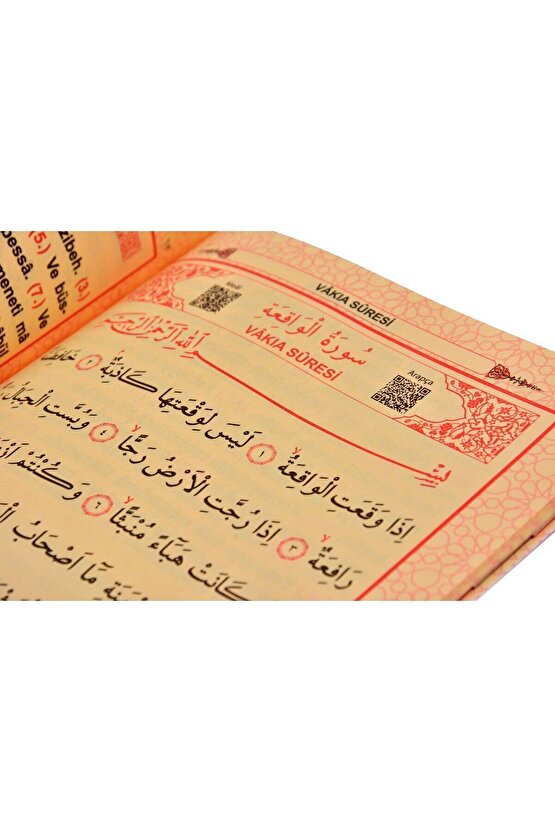 zibeh. (3.)
(5.) Ve büs-
bessâ. (7.) Ve
meneti mâ
VÂKIA SÛRESİ
Meâl
سُورَةُ الْوَاقِعَةِ
VÂKIA SÛRESİ
Arapça
بِسْمِ اللّٰهِ الرَّحْمٰنِ الرَّحِيمِ
اِذَا وَقَعَتِ الْوَاقِعَةُ ١ لَيْسَ لِوَقْعَتِهَا كَاذِبَةٌ ٢ خَافِضَةٌ
رَافِعَةٌ ٣ اِذَا رُجَّتِ الْاَرْضُ رَجًّا ٤ وَبُسَّتِ الْجِبَالُ
كَانَتْ هَبَٓاءً مُنْبَثًّا ٦ وَكُنْتُمْ
مَٓا اَصْحَابُ